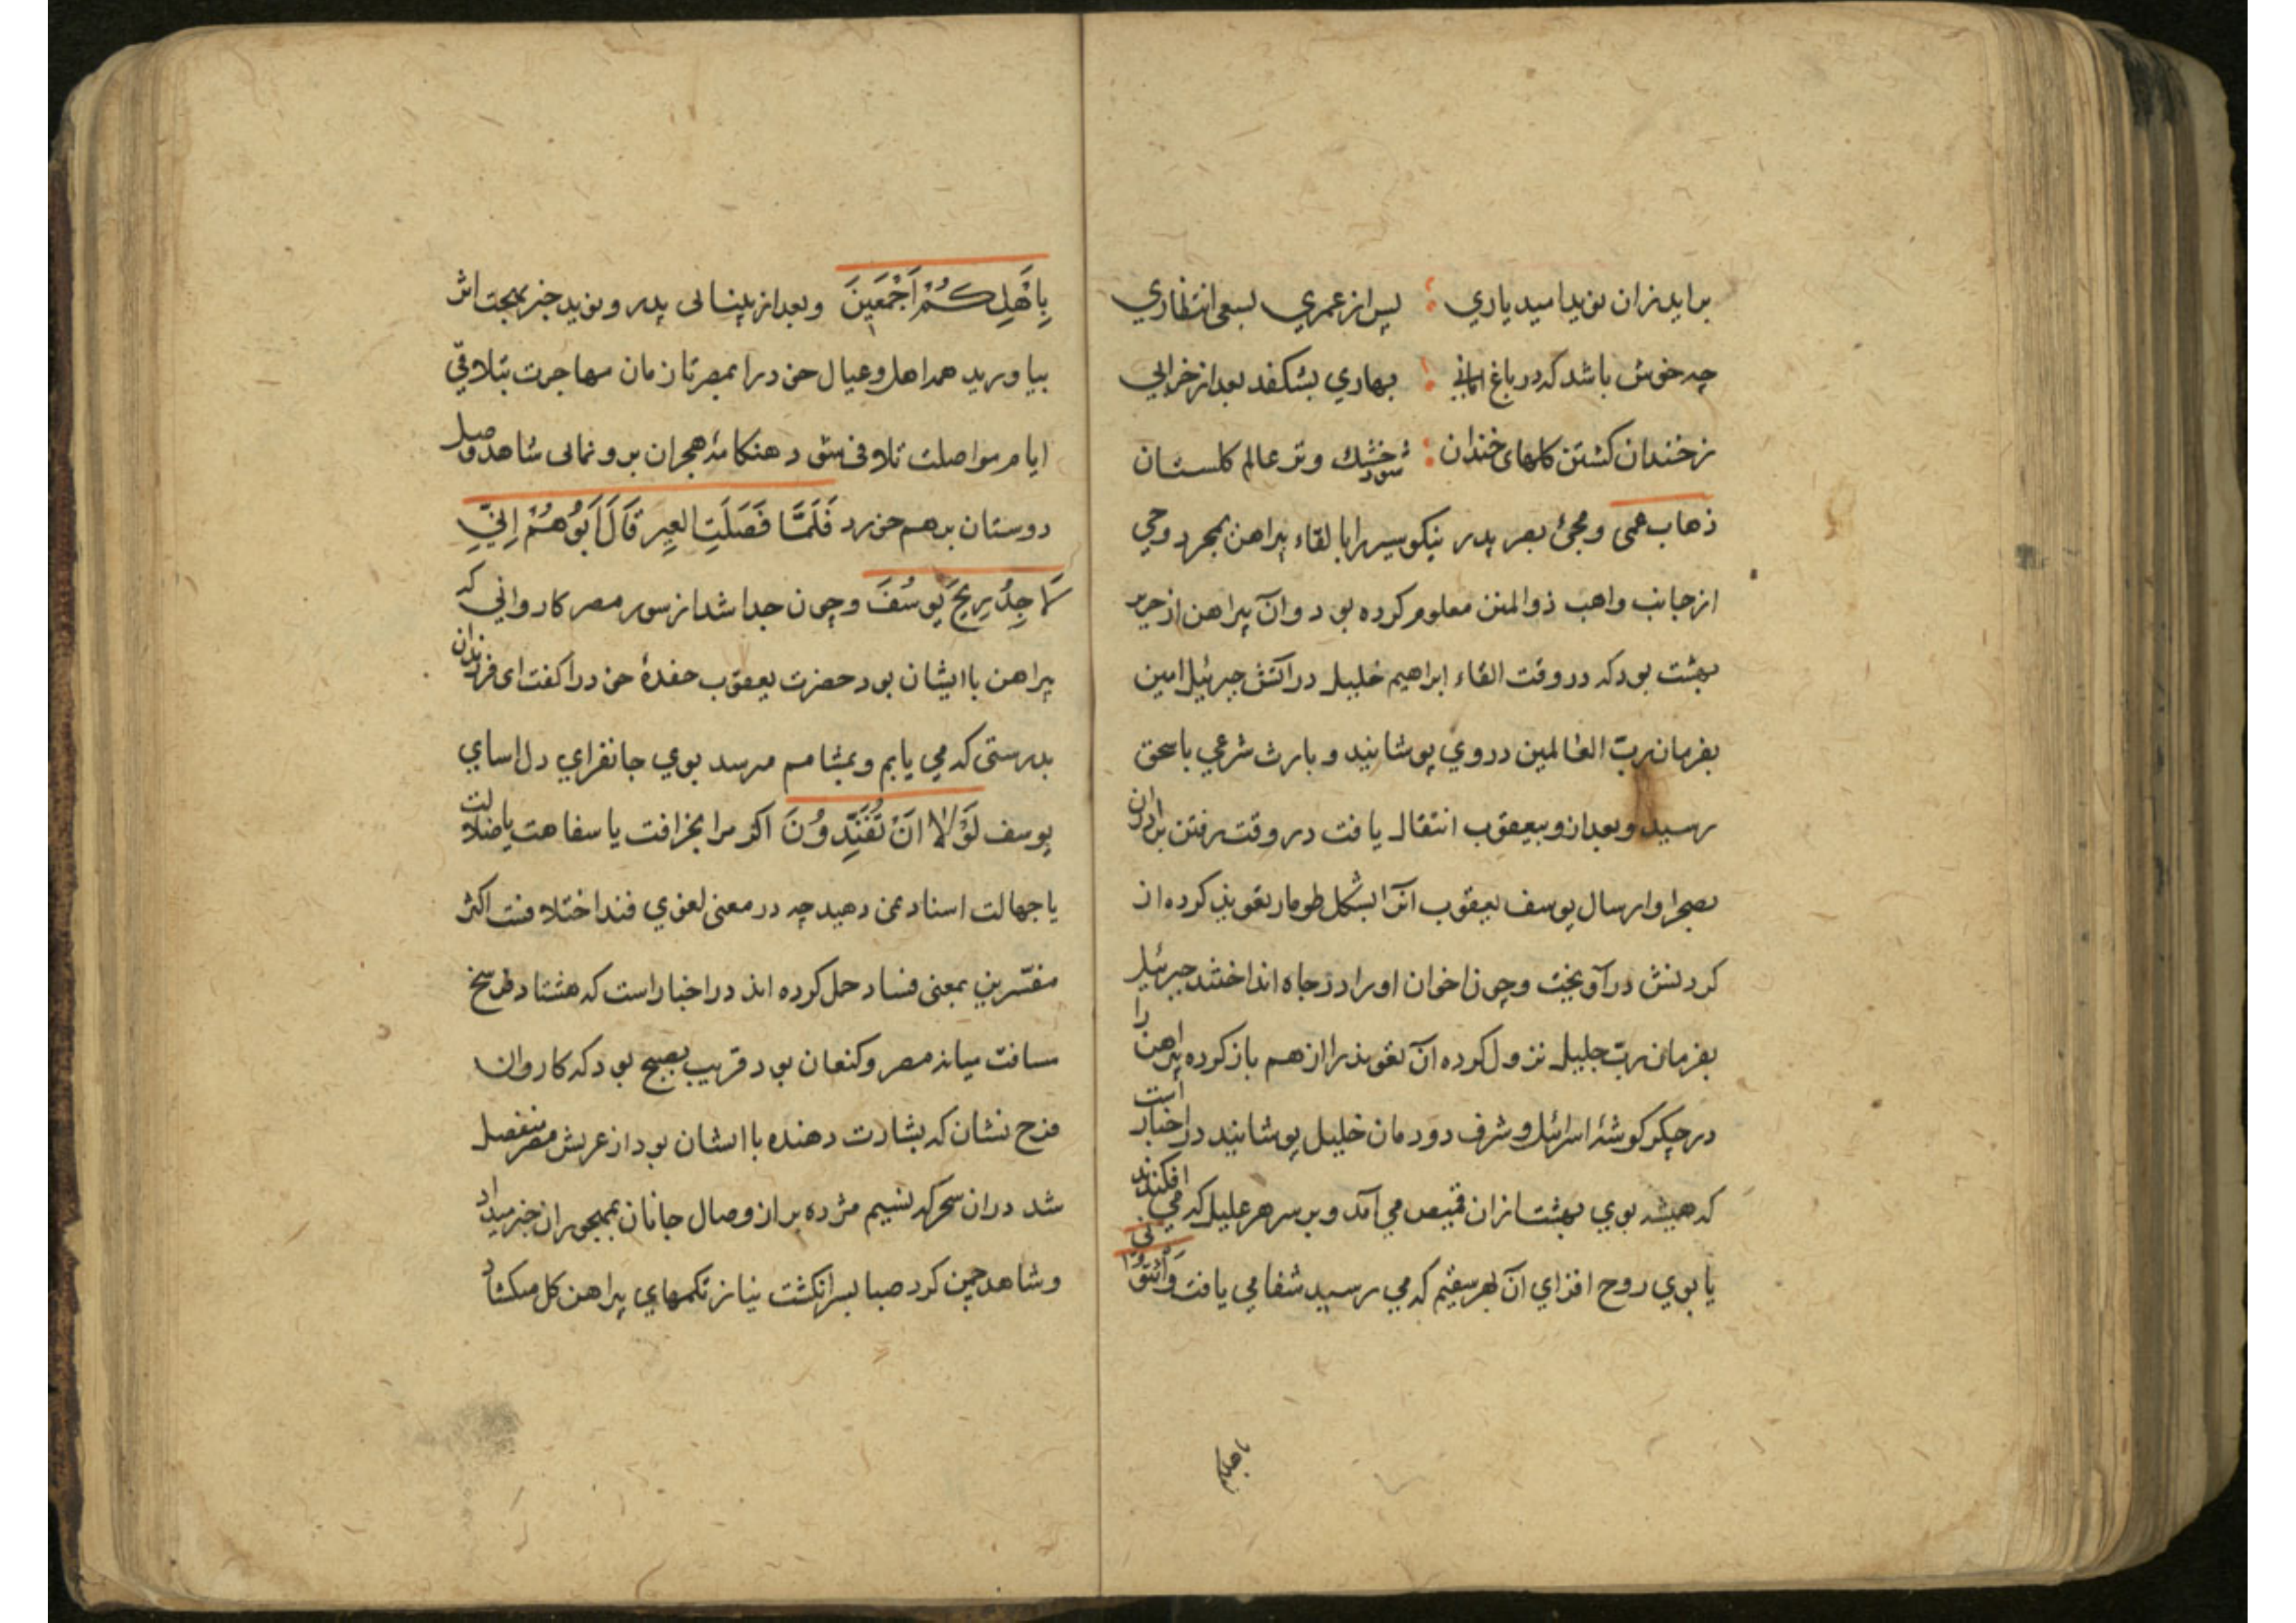 برآید زان نوید امید یاری ؛ پس از عمری بسعی انتظاری
چه خوش باشد که در باغ امانی ؛ بهاری بشکفد بعد از خزانی
ز خندان گشتن گلهای خندان ؛ شود خشک و تر عالم گلستان
ذهاب عمی و مجئ بصر پدر نیکو سیر را بالقاء پیراهن بمجرد وحی
از جانب واهب ذوالمنن معلوم کرده بود و آن پیراهن از حریر
بهشت بود که در وقت القاء ابراهیم خلیل در آتش جبرئیل امین
بفرمان ربّ العالمین در وی پوشانید و بارث شرعی باسحق
رسید و بعد از و بیعقوب انتقال یافت در وقت رفتن برادران
بصحرا و ارسال یوسف یعقوب آنرا بشکل طومار تعویذ کرده از
کردنش در آویخت و چون اخوان او را در چاه انداختند جبرئیل
بفرمان ربّ جلیل نزول کرده آن تعویذ را از هم باز کرده پیراهن را
در جگر گوشهٔ اسرائیل و شرف دودمان خلیل پوشانید در اخبار است
که همیشه بوی بهشت ازان قمیص می آمد و بر سر هر علیل که می افکندند
یا بوی روح افزای آن بهر سقیم که می رسید شفا می یافت وَأْتُونی
باهلکم
بِاَهْلِكُمْ اَجْمَعِينَ و بعد از بینائی پدر و نوید خبر بهجت اثر
بیاورید همه اهل و عیال خود را بمصر تا زمان مهاجرت بتلاقی
ایام مواصلت تلافی شود هنگامهٔ هجران برو نمائی شاهد وصل
دوستان بر هم خورد فَلَمَّا فَصَلَتِ العِيرُ قَالَ اَبُوهُمْ اِنِّي
لَاَجِدُ رِيحَ يُوسُفَ و چون جدا شد از سور مصر کاروانی که
پیراهن با ایشان بود حضرت یعقوب حفدهٔ خود را گفت ای فرزندان
بدرستی که می یابم و بمشامم مرسد بوی جانفزای دل اسای
یوسف لَوْلَا اَنْ تُفَنِّدُونَ اگر مرا بخرافت یا سفاهت یا ضلالت
یا جهالت اسناد نمی دهید چه در معنی لغوی فند اختلافست اکثر
مفسّرین بمعنی فساد حمل کرده اند در اخبار است که هشتاد فرسخ
مسافت میانه مصر و کنعان بود قریب بصبح بود که کاروان
فرح نشان که بشارت دهنده با ایشان بود از عریش مصر منفصل
شد دران سحر که نسیم مژده بر از وصال جانان بمهجوران خبر میداد
و شاهد چمن کرد صبا بسر انگشت نیاز تکمهای پیراهن کل میکشاد